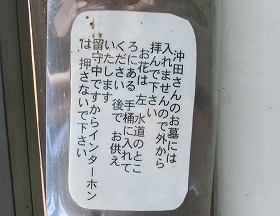 沖田さんのお墓には
入れませんので外から
拝んで下さい
お花は 左 水道のとこ
ろにある 手桶に入れて
ください 後で お供え
いたします
留守中ですからインターホン
は 押さないで下さい